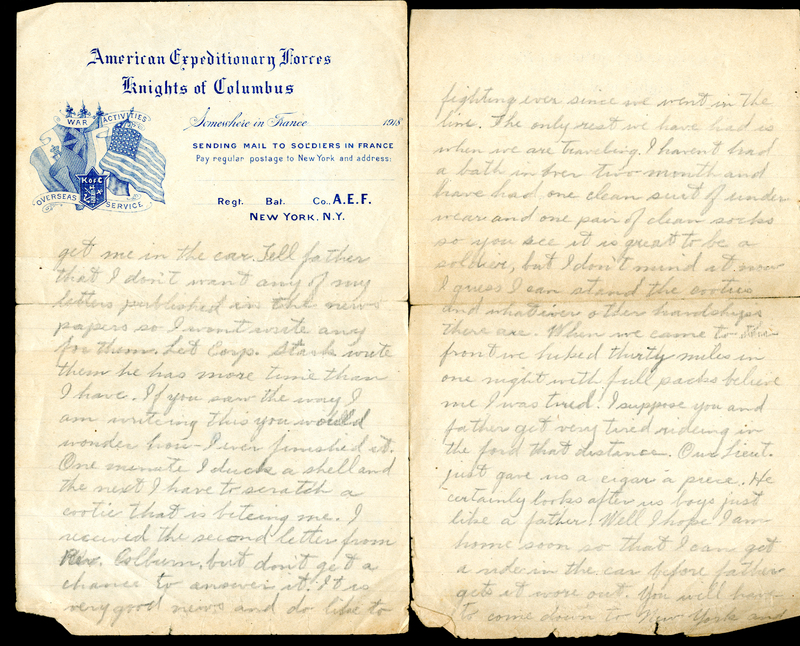 American Expeditionary Forces
Knights of Columbus
WAR ACTIVITIES
K of C
OVERSEAS SERVICE
Somewhere in France 1918
SENDING MAIL TO SOLDIERS IN FRANCE
Pay regular postage to New York and address:
Regt. Bat. Co., A.E.F.
NEW YORK, N.Y.
get me in the car. Tell father
that I don't want any of my
letters published in the news
papers so I wont write any
for them. Let Corp. Stark write
them he has more time than
I have. If you saw the way I
am writeing this you would
wonder how I ever finished it.
One minute I duck a shell and
the next I have to scratch a
cootie that is biteing me. I
received the second letter from
Rev. Colburn, but don't get a
chance to answer it. It is
very good news and do like to
fighting ever since we went in the
line. The only rest we have had is
when we are traveling. I haven't had
a bath in over two month and
have had one clean suit of under
wear and one pair of clean socks
so you see it is great to be a
soldier, but I don't mind it now
I guess I can stand the cooties
and whatever other hardships
there are. When we came to this
front we hiked thirty miles in
one night with full packs believe
me I was tired. I suppose you and
father get very tired rideing in
the ford that distance. Our Lieut.
just gave us a cigar a piece. He
certainly looks after us boys just
like a father. Well I hope I am
home soon so that I can get
a ride in the car before father
gets it wore out. You will have
to come down to New York and